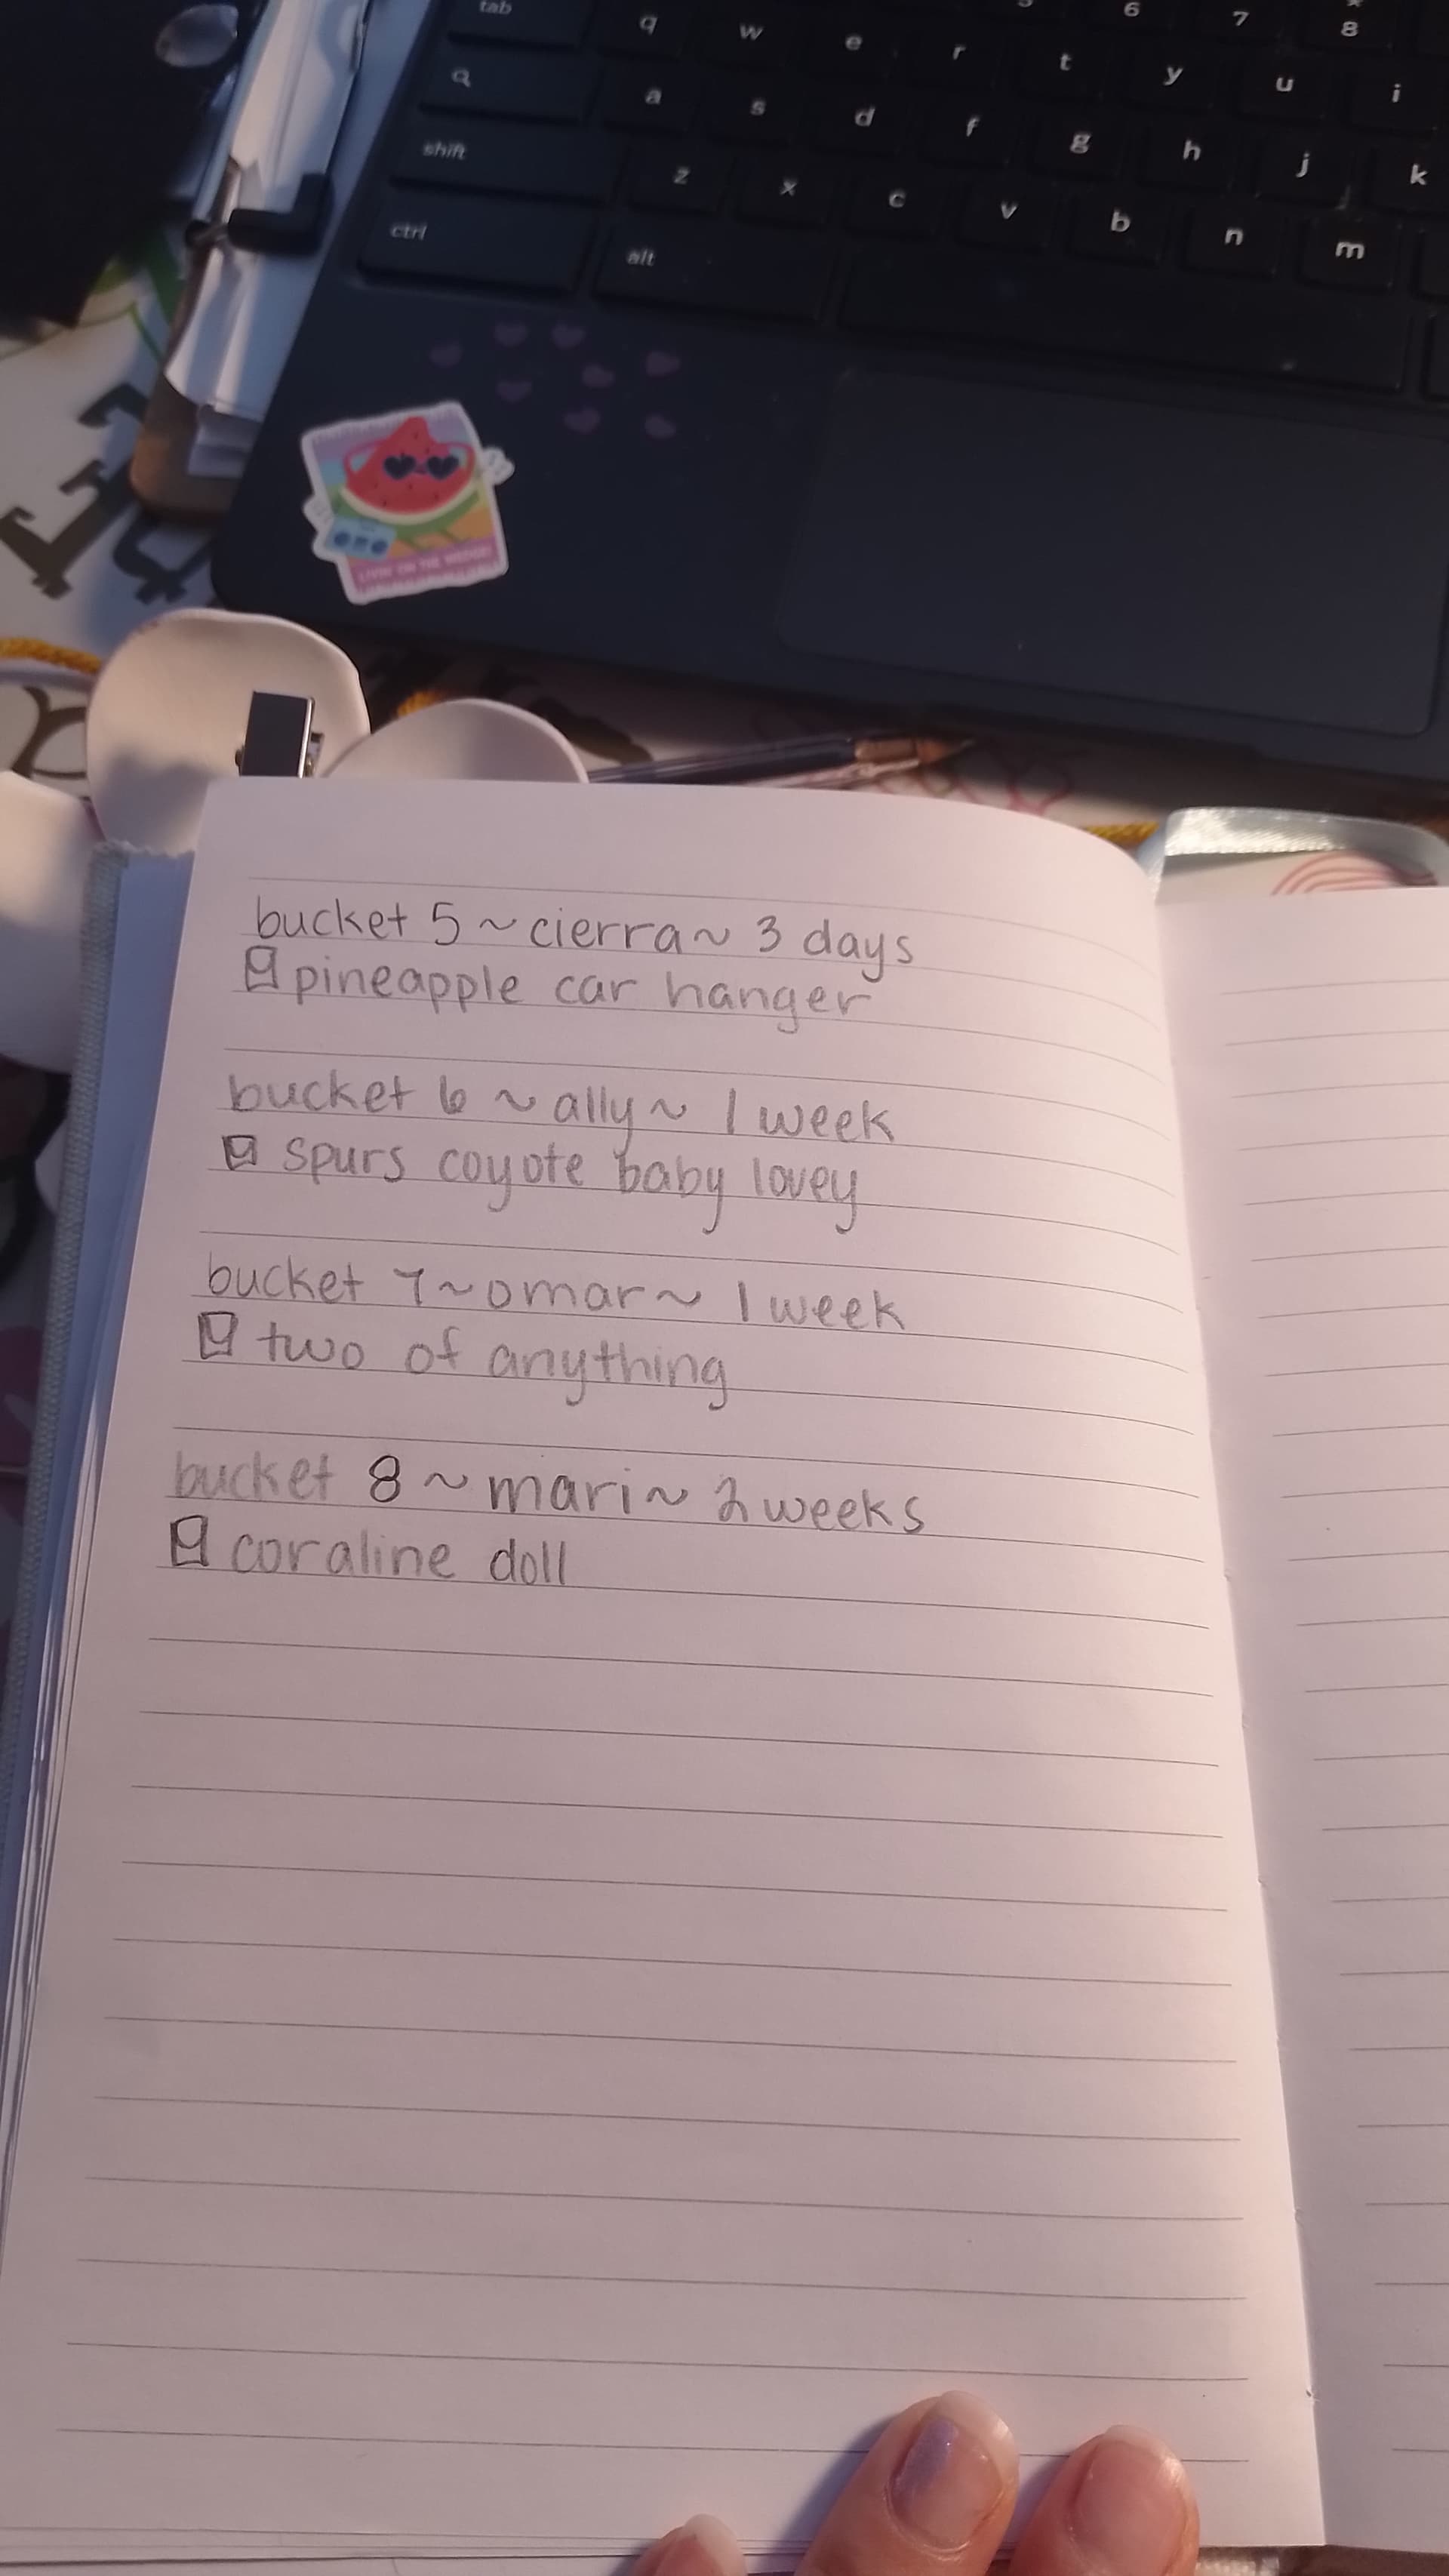 tab q w e r t y u i
6 7 8
a s d f g h j k
shift z x c v b n m
ctrl alt
LIVIN' ON THE WEDGE!
bucket 5 ~ cierra ~ 3 days
pineapple car hanger
bucket 6 ~ ally ~ 1 week
spurs coyote baby lovey
bucket 7 ~ omar ~ 1 week
two of anything
bucket 8 ~ mari ~ 2 weeks
coraline doll